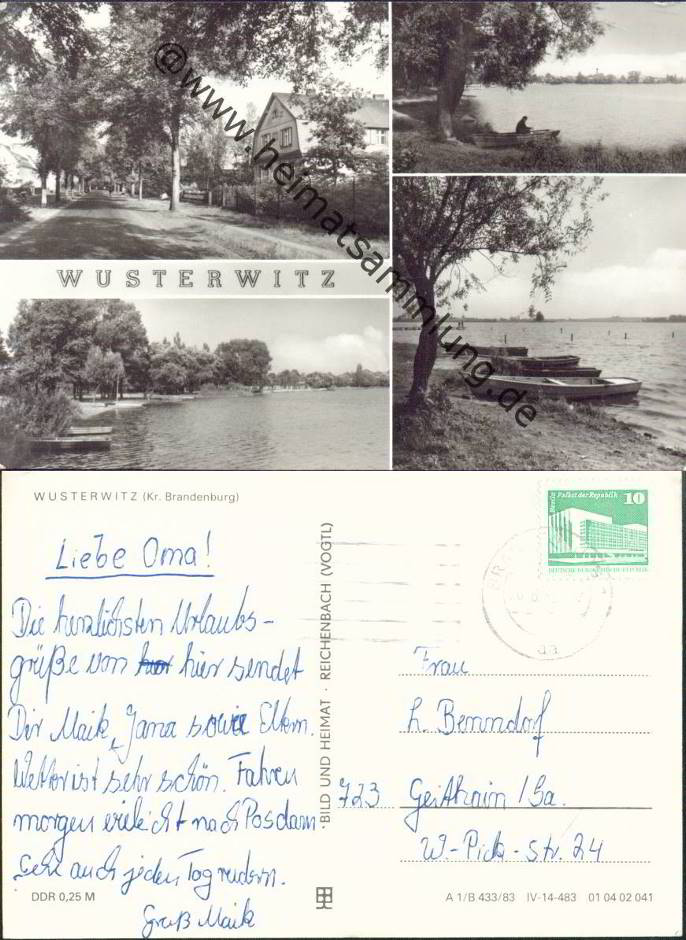 @www.heimatsammlung.de
WUSTERWITZ
WUSTERWITZ (Kr. Brandenburg)
Berlin Palast der Republik 10
DEUTSCHE DEMOKRATISCHE REPUBLIK
Liebe Oma!
Die herzlichsten Urlaubs-
grüße von hier sendet
Dir Maik, Jana sowie Eltern.
Wetter ist sehr schön. Fahren
morgen nach Posdam.
auch jeden Tag rudern.
Gruß Maik
BILD UND HEIMAT · REICHENBACH (VOGTL)
Frau
L. Benndorf
723 Geithain / Sa.
W.-Pieck-Str. 24
DDR 0,25 M
A 1/B 433/83 IV-14-483 01 04 02 041